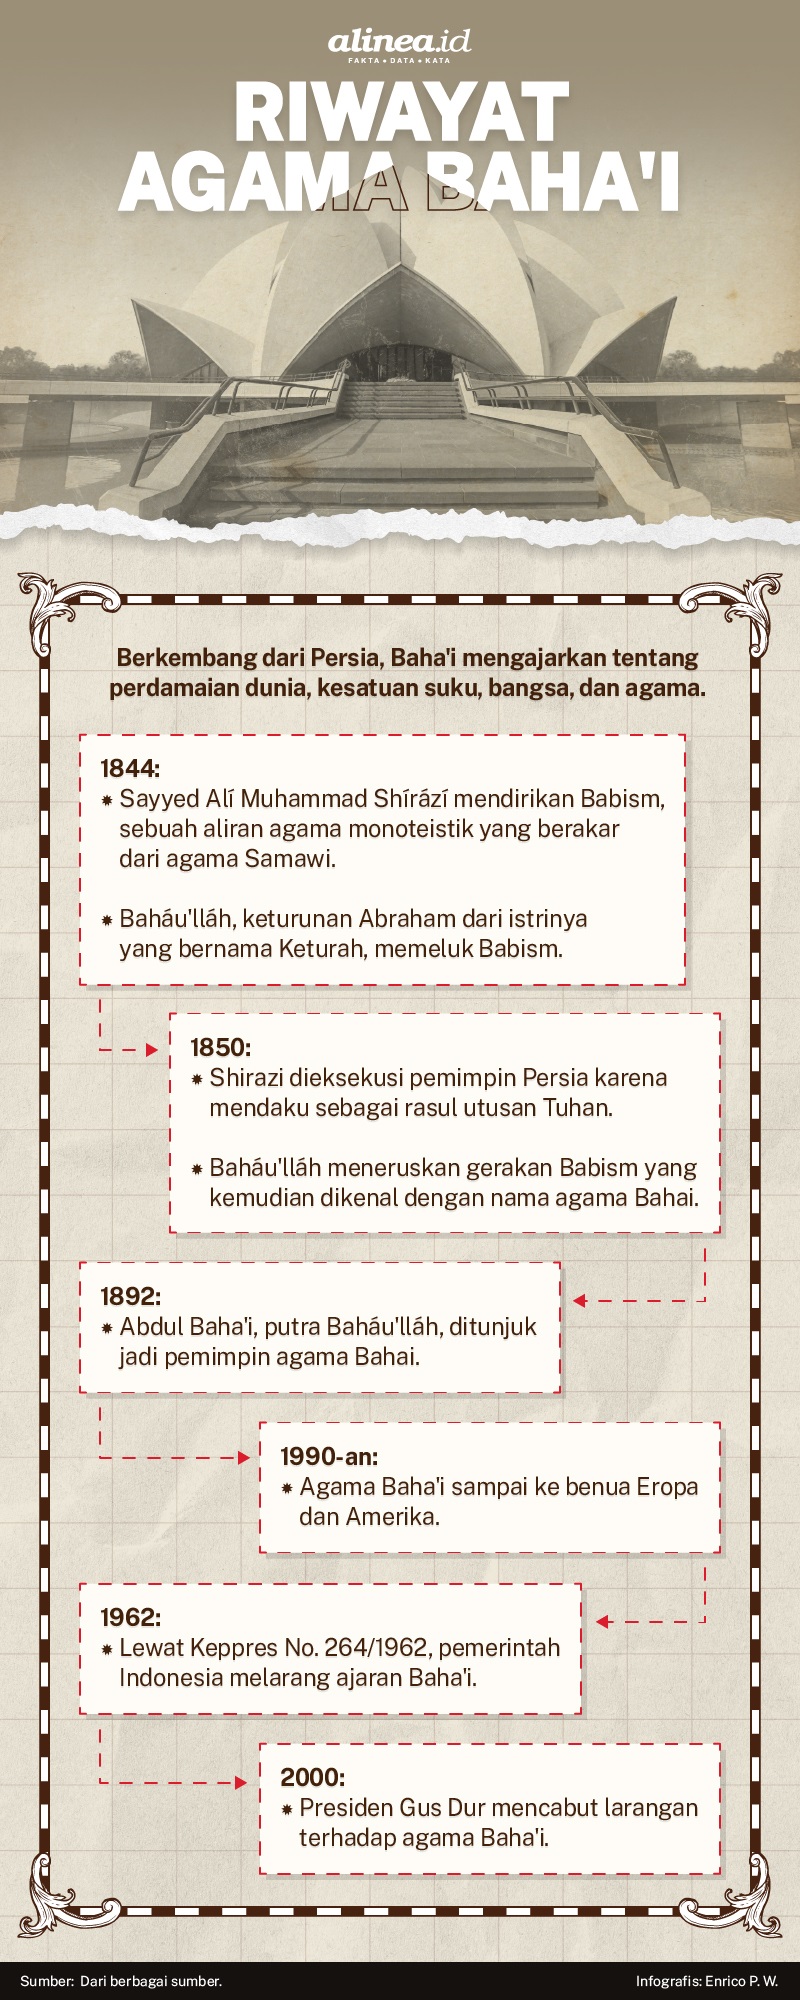 alinea.id
FAKTA • DATA • KATA
RIWAYAT
AGAMA BAHA'I
Berkembang dari Persia, Baha'i mengajarkan tentang
perdamaian dunia, kesatuan suku, bangsa, dan agama.
1844:
Sayyed Alí Muhammad Shírází mendirikan Babism,
sebuah aliran agama monoteistik yang berakar
dari agama Samawi.
Baháu'lláh, keturunan Abraham dari istrinya
yang bernama Keturah, memeluk Babism.
1850:
Shirazi dieksekusi pemimpin Persia karena
mendaku sebagai rasul utusan Tuhan.
Baháu'lláh meneruskan gerakan Babism yang
kemudian dikenal dengan nama agama Bahai.
1892:
Abdul Baha'i, putra Baháu'lláh, ditunjuk
jadi pemimpin agama Bahai.
1990-an:
Agama Baha'i sampai ke benua Eropa
dan Amerika.
1962:
Lewat Keppres No. 264/1962, pemerintah
Indonesia melarang ajaran Baha'i.
2000:
Presiden Gus Dur mencabut larangan
terhadap agama Baha'i.
Sumber: Dari berbagai sumber.
Infografis: Enrico P. W.